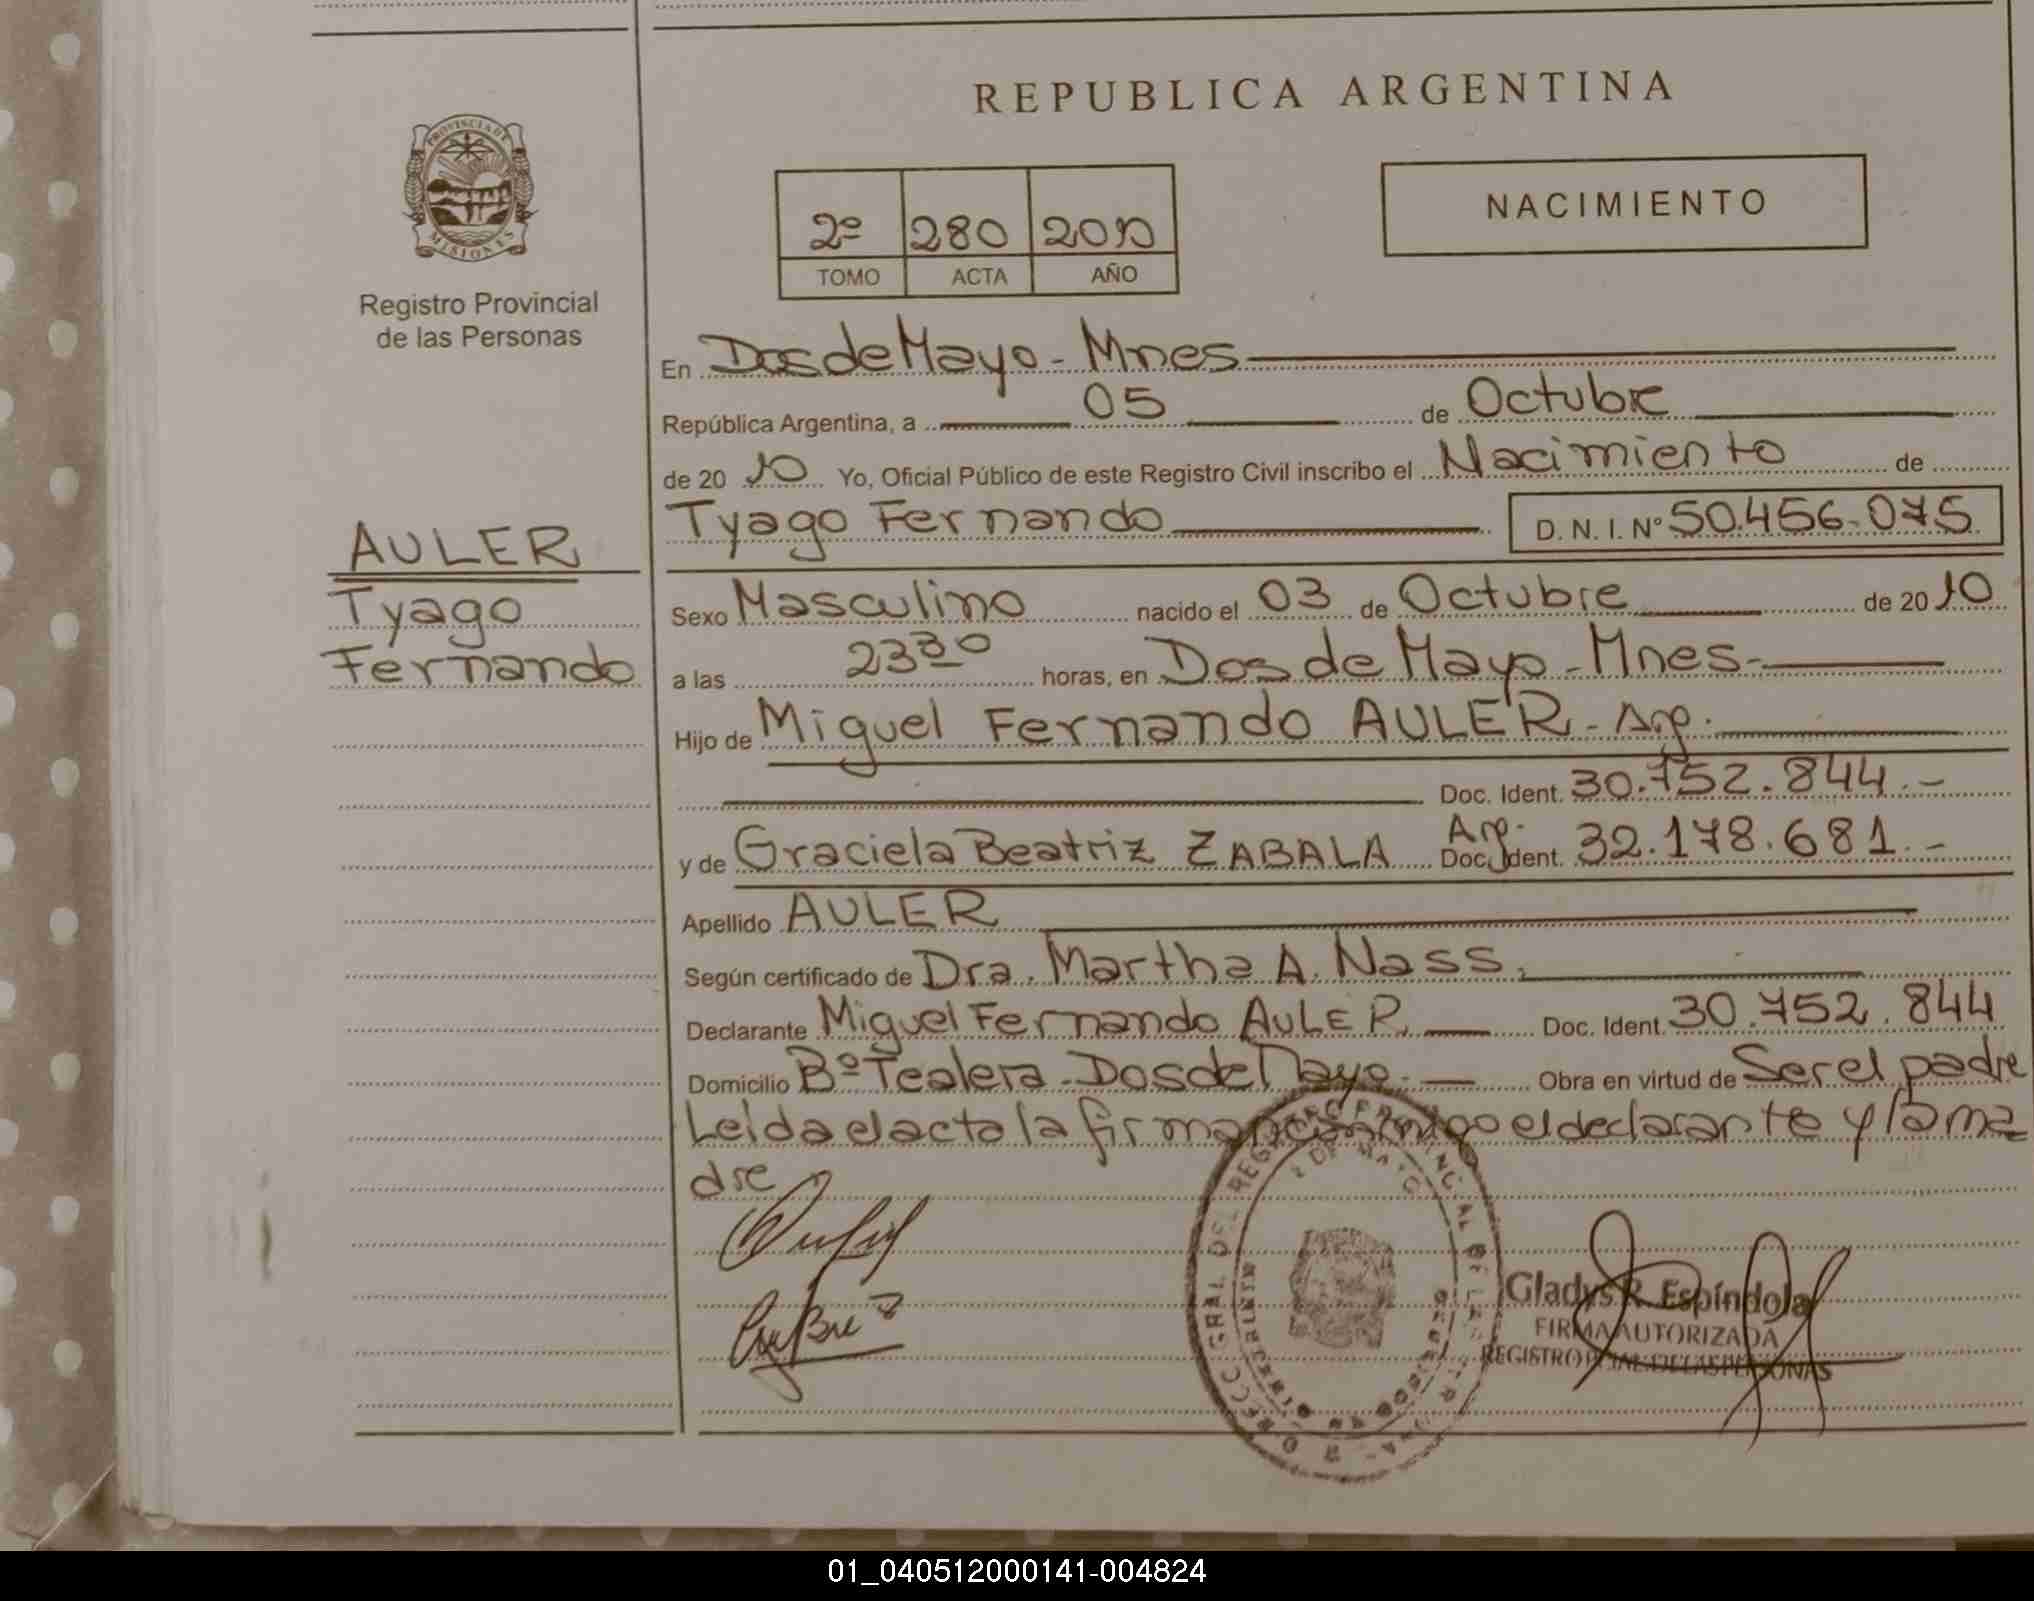 REPUBLICA ARGENTINA
PROVINCIA DE
MISIONES
Registro Provincial
de las Personas
2º 280 2010
TOMO ACTA AÑO
NACIMIENTO
En Dos de Mayo - Mnes
República Argentina, a 05 de Octubre
de 20 10 Yo, Oficial Público de este Registro Civil inscribo el Nacimiento de
Tyago Fernando D. N. I. Nº 50.456.075
AULER
Tyago
Fernando
Sexo Masculino nacido el 03 de Octubre de 20 10
a las 23 30 horas, en Dos de Mayo - Mnes -
Hijo de Miguel Fernando AULER - Arg.
Doc. Ident. 30.752.844.-
y de Graciela Beatriz ZABALA Arg. Doc. Ident. 32.178.681.-
Apellido AULER
Según certificado de Dra. Martha A. Nass.
Declarante Miguel Fernando AULER. Doc. Ident. 30.752.844
Domicilio Bº Tealera - Dos de Mayo - Obra en virtud de Ser el padre
Leida el acta la firman conmigo el declarante y la ma
dre
Gladys R. Espíndola
FIRMA AUTORIZADA
REGISTRO PCIAL. DE LAS PERSONAS
01_040512000141-004824